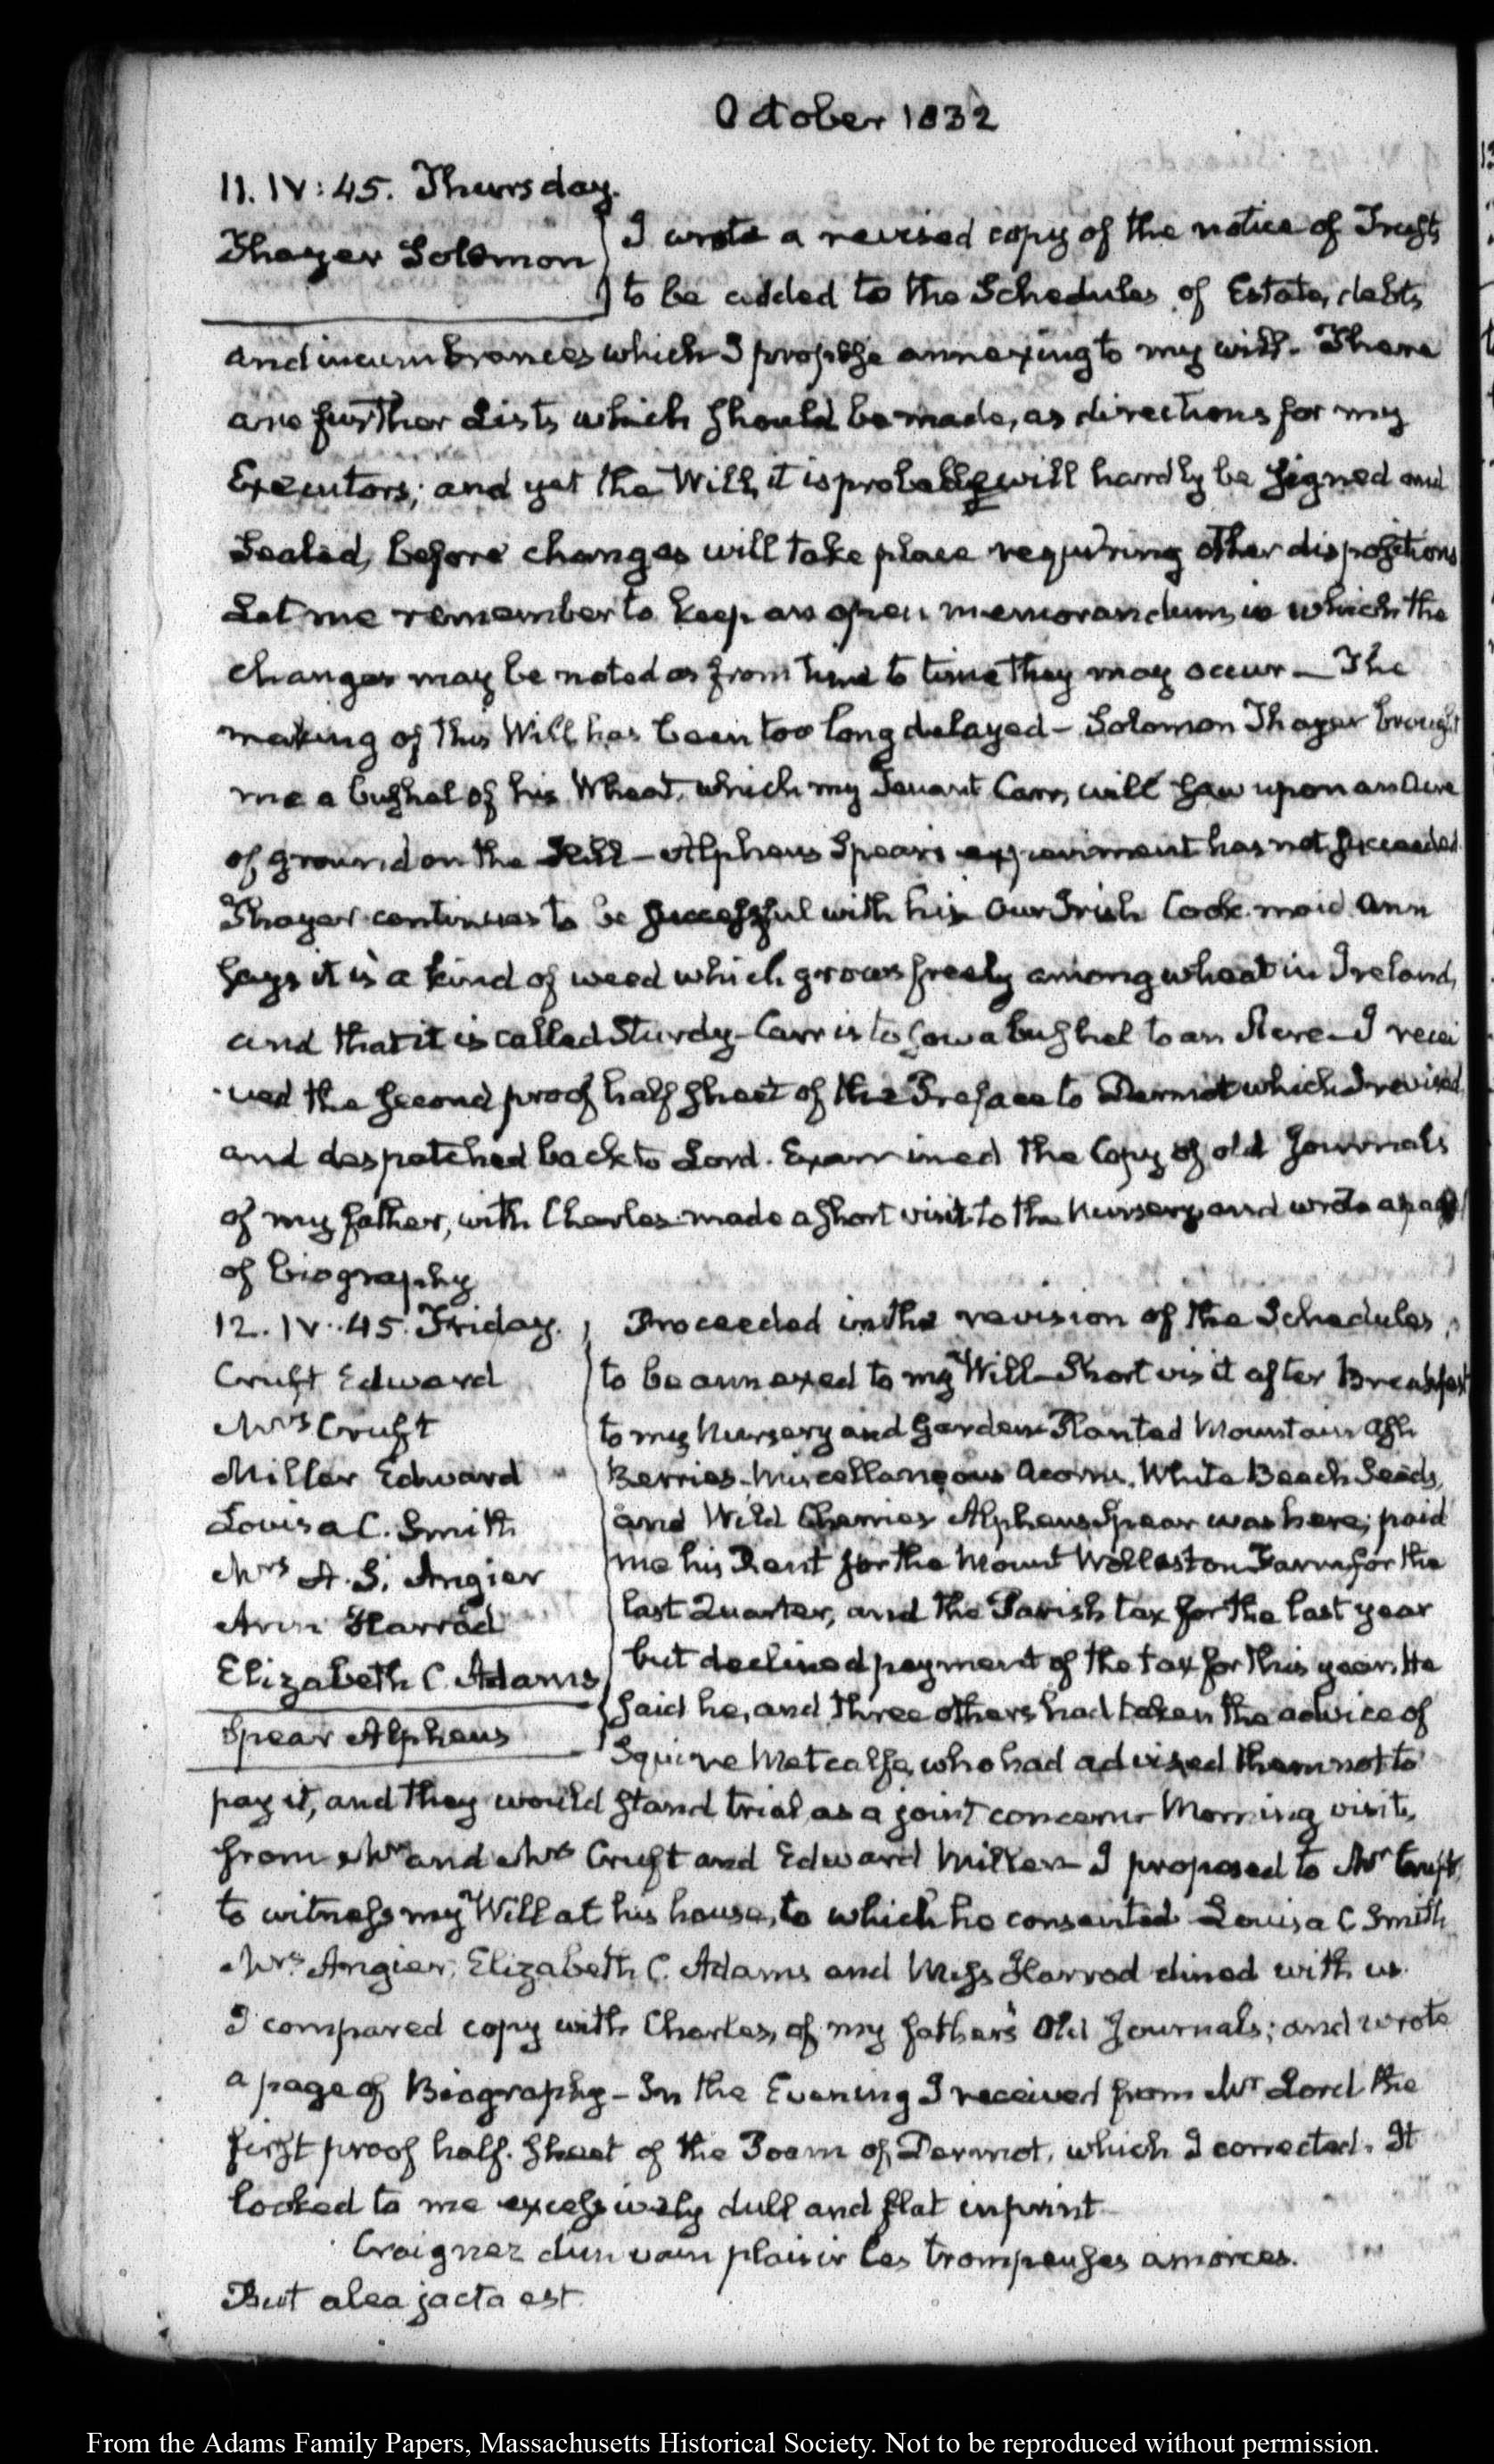 October 1832
11. IV: 45. Thursday.
Thayer Solomon
I wrote a revised copy of the notice of Trusts
to be added to the Schedules of Estate, debts
and incumbrances which I propose annexing to my will. There
are further Lists which should be made, as directions for my
Executors; and yet the Will, it is probable will hardly be signed and
Sealed, before changes will take place requiring other dispositions
Let me remember to keep an open memorandum in which the
changes may be noted as from time to time they may occur — The
making of this Will has been too long delayed — Solomon Thayer brought
me a bushel of his Wheat, which my Tenant Carr, will sow upon an Acre
of ground on the Hill — Alpheus Spear's experiment has not succeeded.
Thayer continues to be successful with his. Our Irish Cook maid Ann
says it is a kind of weed which grows freely among wheat in Ireland,
and that it is called Sturdy — Carr is to sow a bushel to an Acre — I recei
ved the second proof half sheet of the Preface to Dermot which I revised
and despatched back to Lord. Examined the Copy of old Journals
of my father, with Charles — made a short visit to the Nursery and wrote a page
of biography
12. IV. 45. Friday.
Cruft Edward
Mrs Cruft
Miller Edward
Louisa C. Smith
Mrs A. S. Angier
Ann Harrod
Elizabeth C. Adams
Spear Alpheus
Proceeded in the revision of the Schedules
to be annexed to my Will — Short visit after Breakfast
to my Nursery and Garden — Planted Mountain Ash
Berries — Miscellaneous Acorns, White Beech Seeds,
and Wild Cherries — Alpheus Spear was here; paid
me his Rent for the Mount Wollaston Farm for the
last Quarter, and the Parish tax for the last year
but declined payment of the tax for this year. He
said he, and three others had taken the advice of
Squire Metcalfe, who had advised them not to
pay it, and they would stand trial as a joint concern — Morning visit,
from Mr and Mrs Cruft and Edward Miller — I proposed to Mr Cruft
to witness my Will at his house, to which he consented — Louisa C Smith
Mrs Angier, Elizabeth C. Adams and Miss Harrod dined with us.
I compared copy with Charles, of my father's Old Journals; and wrote
a page of Biography — In the Evening I received from Mr Lord the
first proof half. sheet of the Poem of Dermot, which I corrected. It
looked to me excessively dull and flat in print —
Craignez d'un vain plaisir les trompeuses amorces.
But alea jacta est.
From the Adams Family Papers, Massachusetts Historical Society. Not to be reproduced without permission.